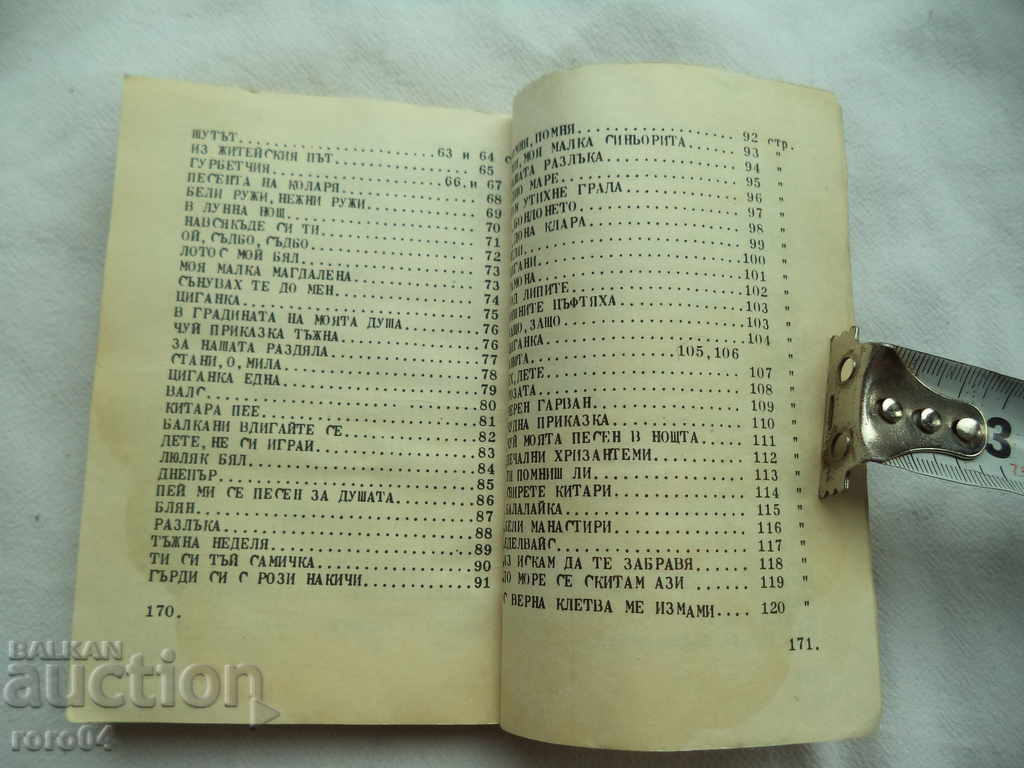 ШУТЪТ. 63 и 64
ИЗ ЖИТЕЙСКИЯ ПЪТ. 65
ГУРБЕТЧИЯ. 66.и 67
ПЕСЕНТА НА КОЛАРЯ. 68
БЕЛИ РУЖИ, НЕЖНИ РУЖИ. 69
В ЛУННА НОЩ. 70
НАВСЯКЪДЕ СИ ТИ. 71
ОЙ, СЪДБО, СЪДБО. 72
ЛОТОС МОЙ БЯЛ. 73
МОЯ МАЛКА МАГДАЛЕНА. 73
СЪНУВАХ ТЕ ДО МЕН. 74
ЦИГАНКА. 75
В ГРАДИНАТА НА МОЯТА ДУША. 76
ЧУЙ ПРИКАЗКА ТЪЖНА. 76
ЗА НАШАТА РАЗДЯЛА. 77
СТАНИ, О, МИЛА. 78
ЦИГАНКА ЕДНА. 79
ВАЛС. 80
КИТАРА ПЕЕ. 81
БАЛКАНИ ВДИГАЙТЕ СЕ. 82
ЛЕТЕ, НЕ СИ ИГРАЙ. 83
ЛЮЛЯК БЯЛ. 84
ДНЕПЪР. 85
ПЕЙ МИ СЕ ПЕСЕН ЗА ДУШАТА. 86
БЛЯН. 87
РАЗЛЪКА. 88
ТЪЖНА НЕДЕЛЯ. 89
ТИ СИ ТЪЙ САМИЧКА. 90
ГЪРДИ СИ С РОЗИ НАКИЧИ. 91
170.
ПОМНЯ. 92 стр.
МОЯ МАЛКА СИНЬОРИТА. 93 "
РАЗЛЪКА. 94 "
МАРЕ. 95 "
УТИХНЕ ГРАДА. 96 "
97 "
КЛАРА. 98 "
99 "
100 "
101 "
ЛИПИТЕ. 102 "
ЦЪФТЯХА. 103 "
ЗАЩО. 103 "
104 "
105,106 "
ЛЕТЕ. 107 "
108 "
ГАРВАН. 109 "
ПРИКАЗКА. 110 "
МОЯТА ПЕСЕН В НОЩТА. 111 "
ХРИЗАНТЕМИ. 112 "
ПОМНИШ ЛИ. 113 "
КИТАРИ. 114 "
БАЛАЛАЙКА. 115 "
БЕЛИ МАНАСТИРИ. 116 "
117 "
ИСКАМ ДА ТЕ ЗАБРАВЯ. 118 "
МОРЕ СЕ СКИТАМ АЗИ. 119 "
ВЕРНА КЛЕТВА МЕ ИЗМАМИ. 120 "
171.
3
BALKAN
auction
roro04